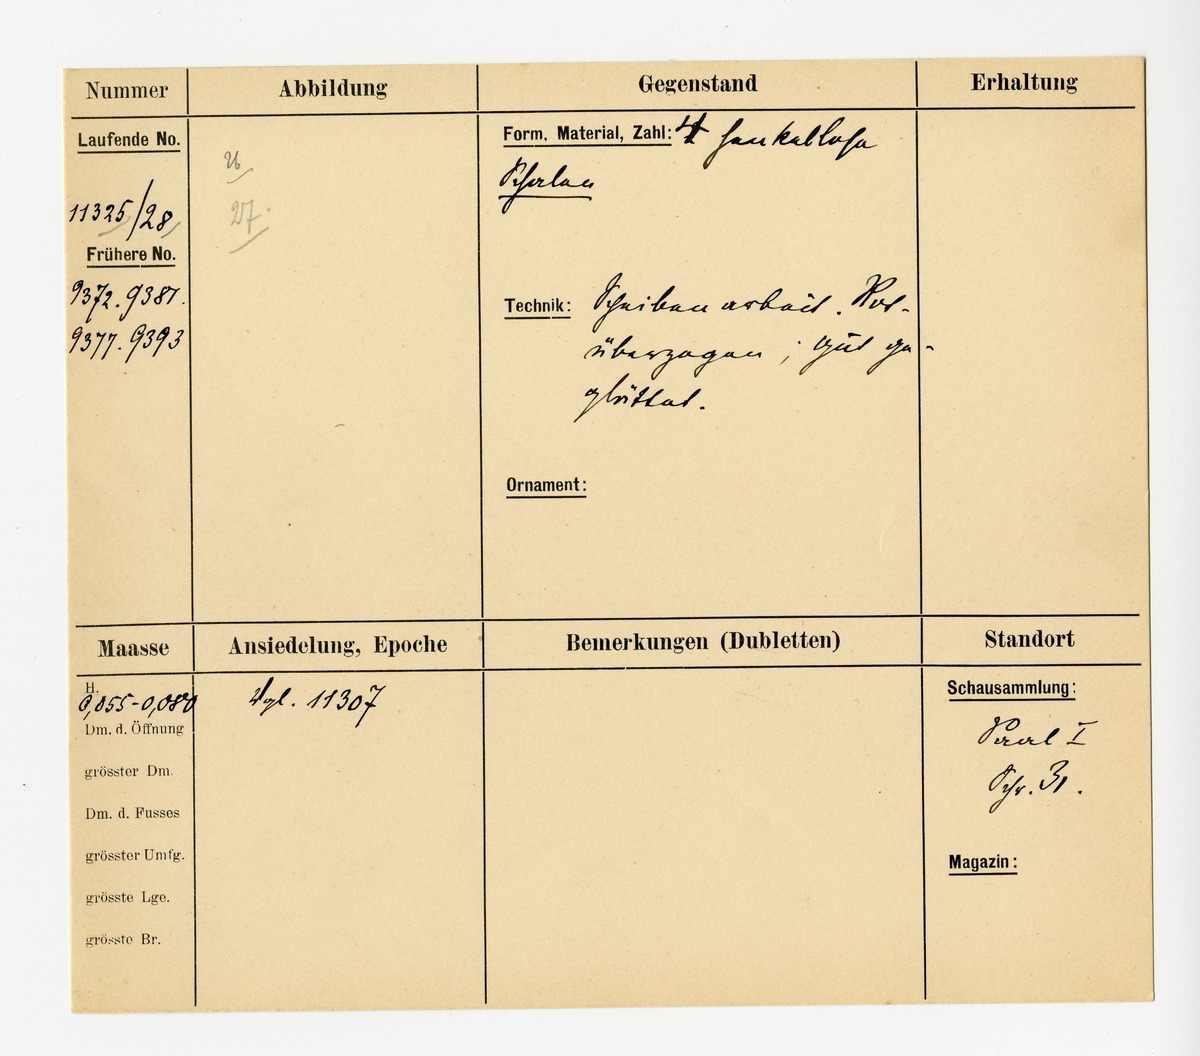 Nummer
Abbildung
Gegenstand
Erhaltung
Laufende No.
11325/28
Frühere No.
9372. 9381.
9377. 9393
26
27.
Form, Material, Zahl: 4 henkellose
Schalen
Technik: Scheibenarbeit. Rot-
überzogen; gut ge-
glättet.
Ornament:
Maasse
Ansiedelung, Epoche
Bemerkungen (Dubletten)
Standort
H.
0,055-0,080
Dm. d. Öffnung
grösster Dm.
Dm. d. Fusses
grösster Umfg.
grösste Lge.
grösste Br.
Vgl. 11307
Schausammlung:
Saal I
Schr. 31.
Magazin: